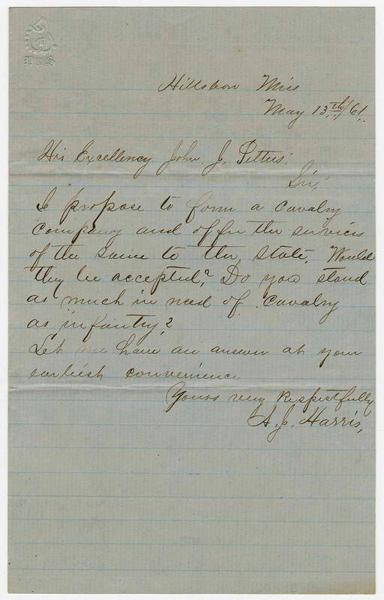 Hillsboro Miss
May 13th/61.
His Excellency John J. Pettus;
Sir,
I propose to form a Cavalry
company and offer the services
of the same to the State. Would
they be accepted? Do you stand
as much in need of Cavalry
as infantry?
Let me have an answer at your
earliest convenience
Yours very Respectfully
A. J. Harris,